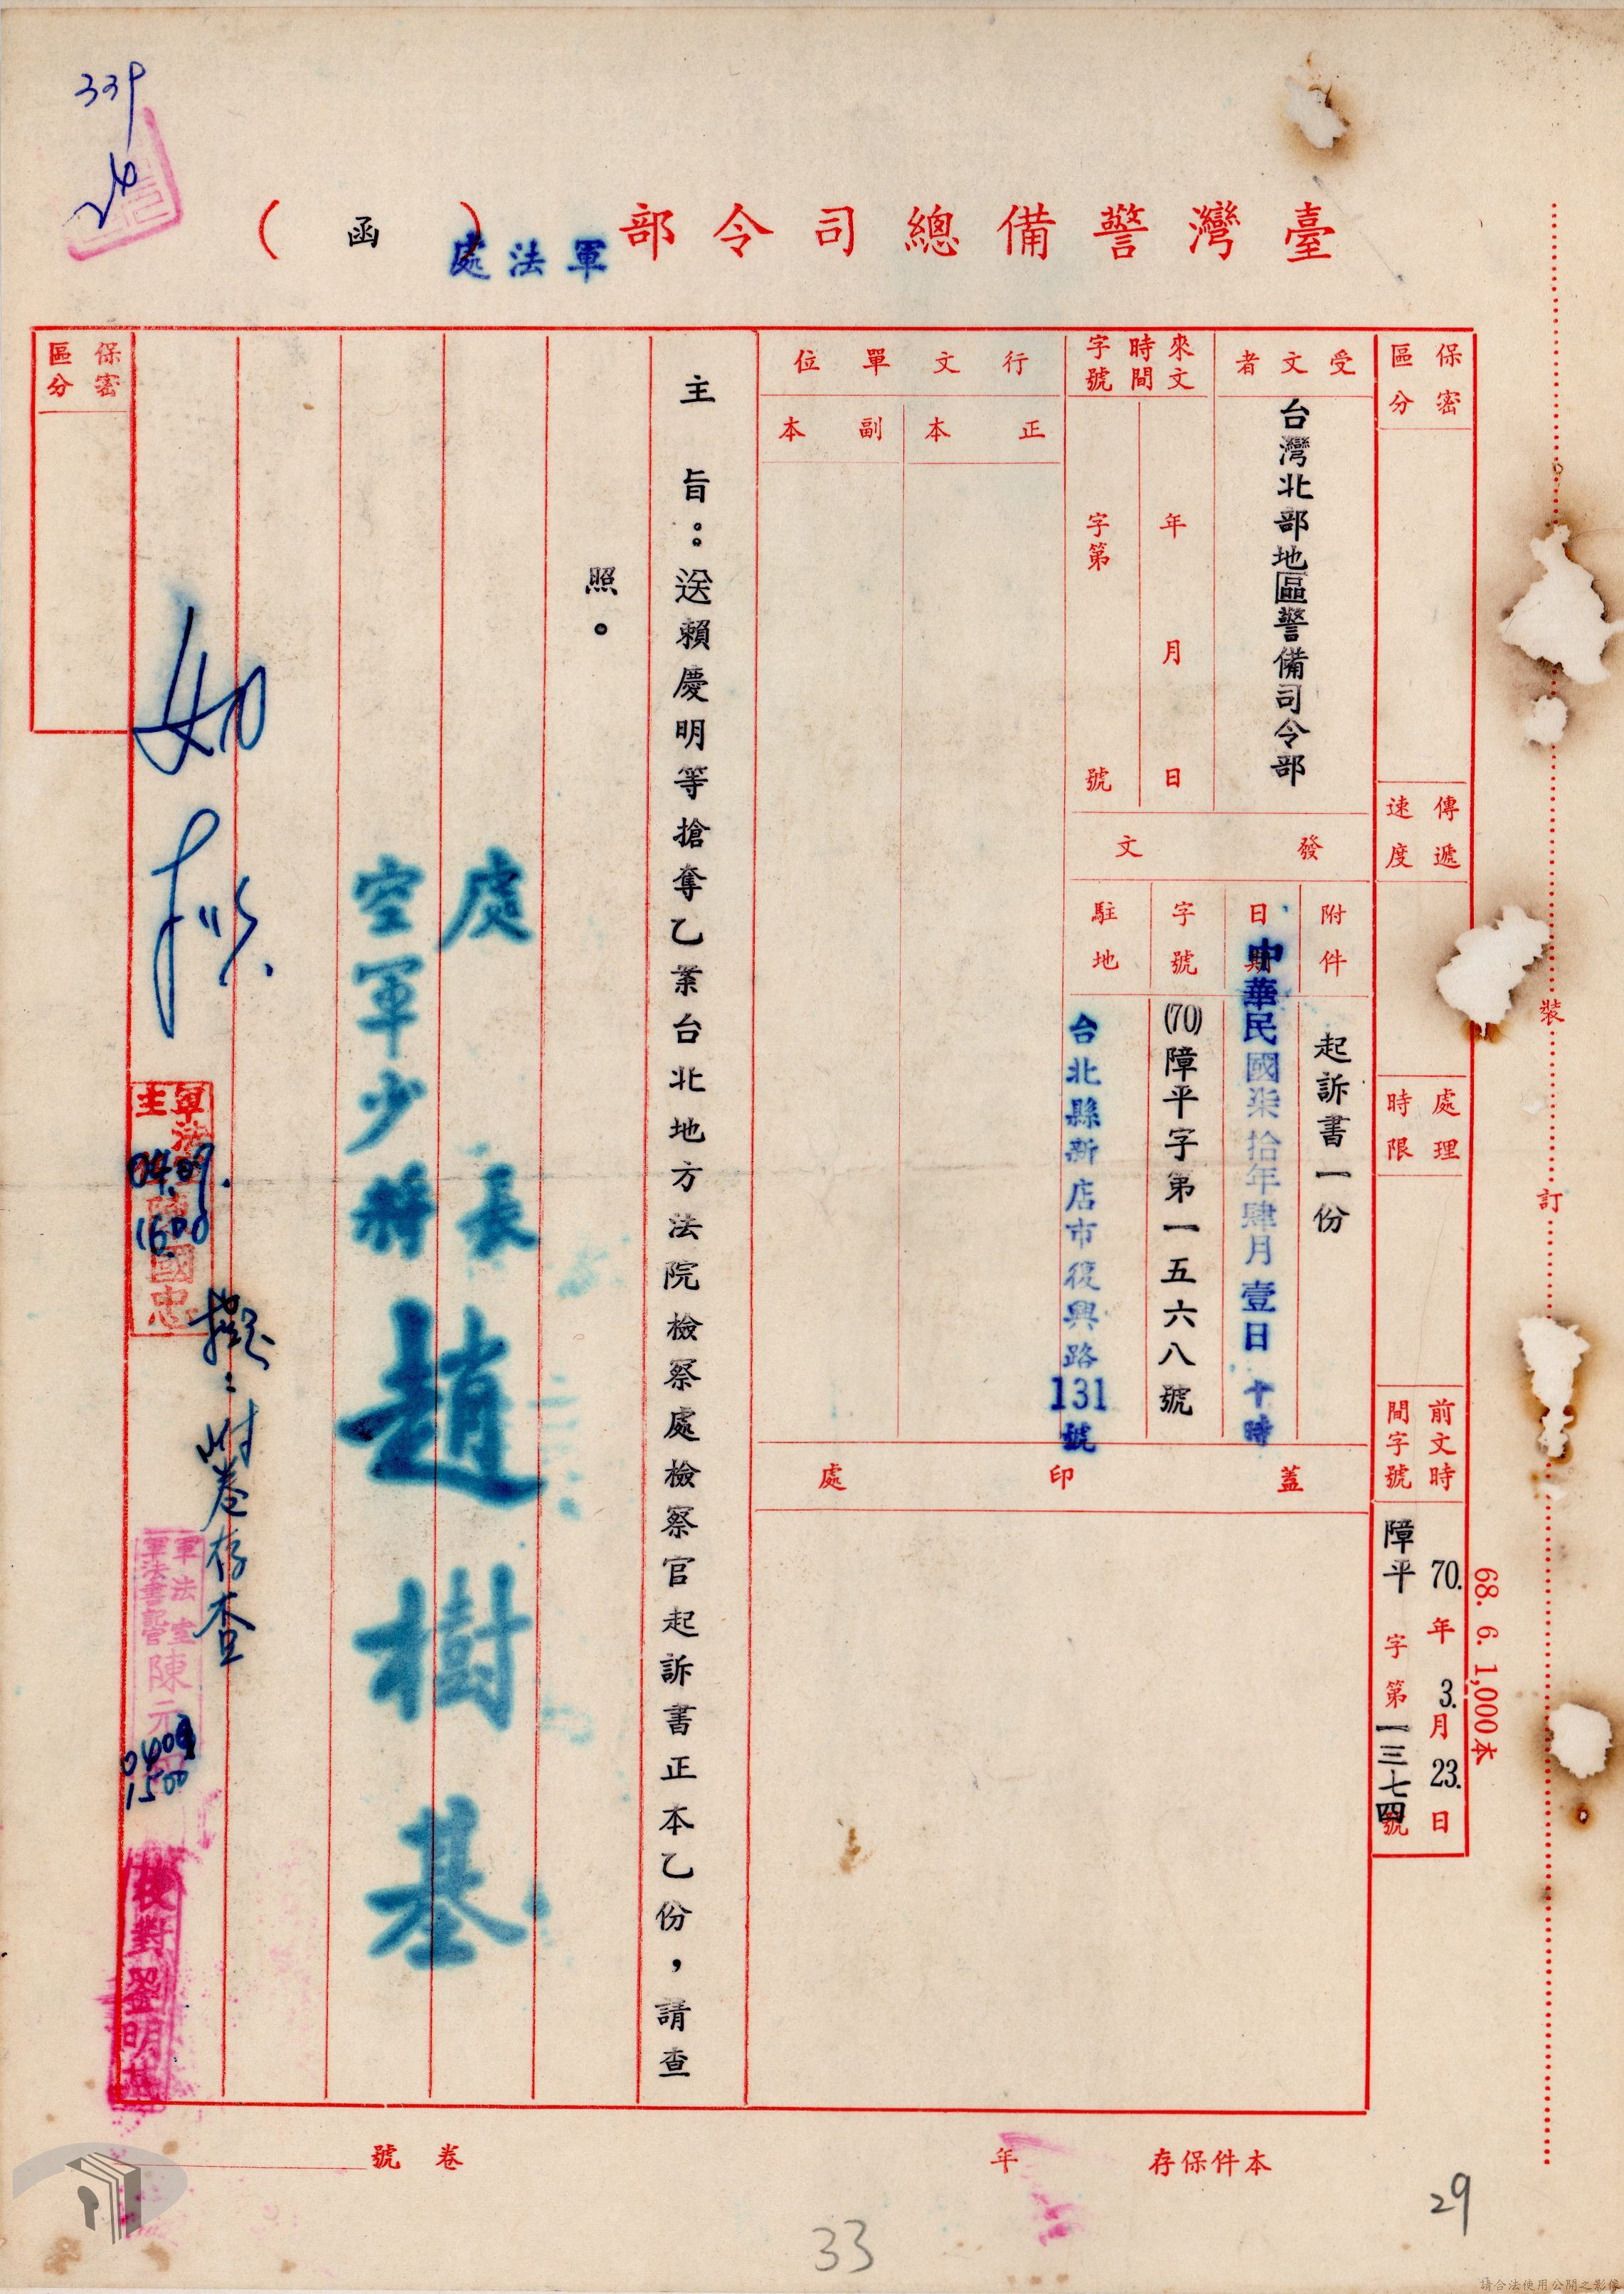 臺灣警備總司令部
軍法處
（函）
保密區分
傳遞速度
處理時限
前文時間字號
70.年3.月23.日
障平字第一三七四號
受文者
台灣北部地區警備司令部
來文時間字號
年月日
字第號
發文
附件
起訴書一份
日期
中華民國柒拾年肆月壹日十時
字號
(70)障平字第一五六八號
駐地
台北縣新店市復興路131號
行文單位
正本
副本
蓋印處
主旨：送賴慶明等搶奪乙案台北地方法院檢察處檢察官起訴書正本乙份，請查
照。
處長
空軍少將
趙樹基
擬：附卷存查
如擬
軍法
主
國忠
04.09.
1600
軍法室
軍法書記官
陳元
0409
1500
校對
明
保密區分
裝
訂
68. 6. 1,000本
本件保存年
卷號
339
33
29
請合法使用公開之影像